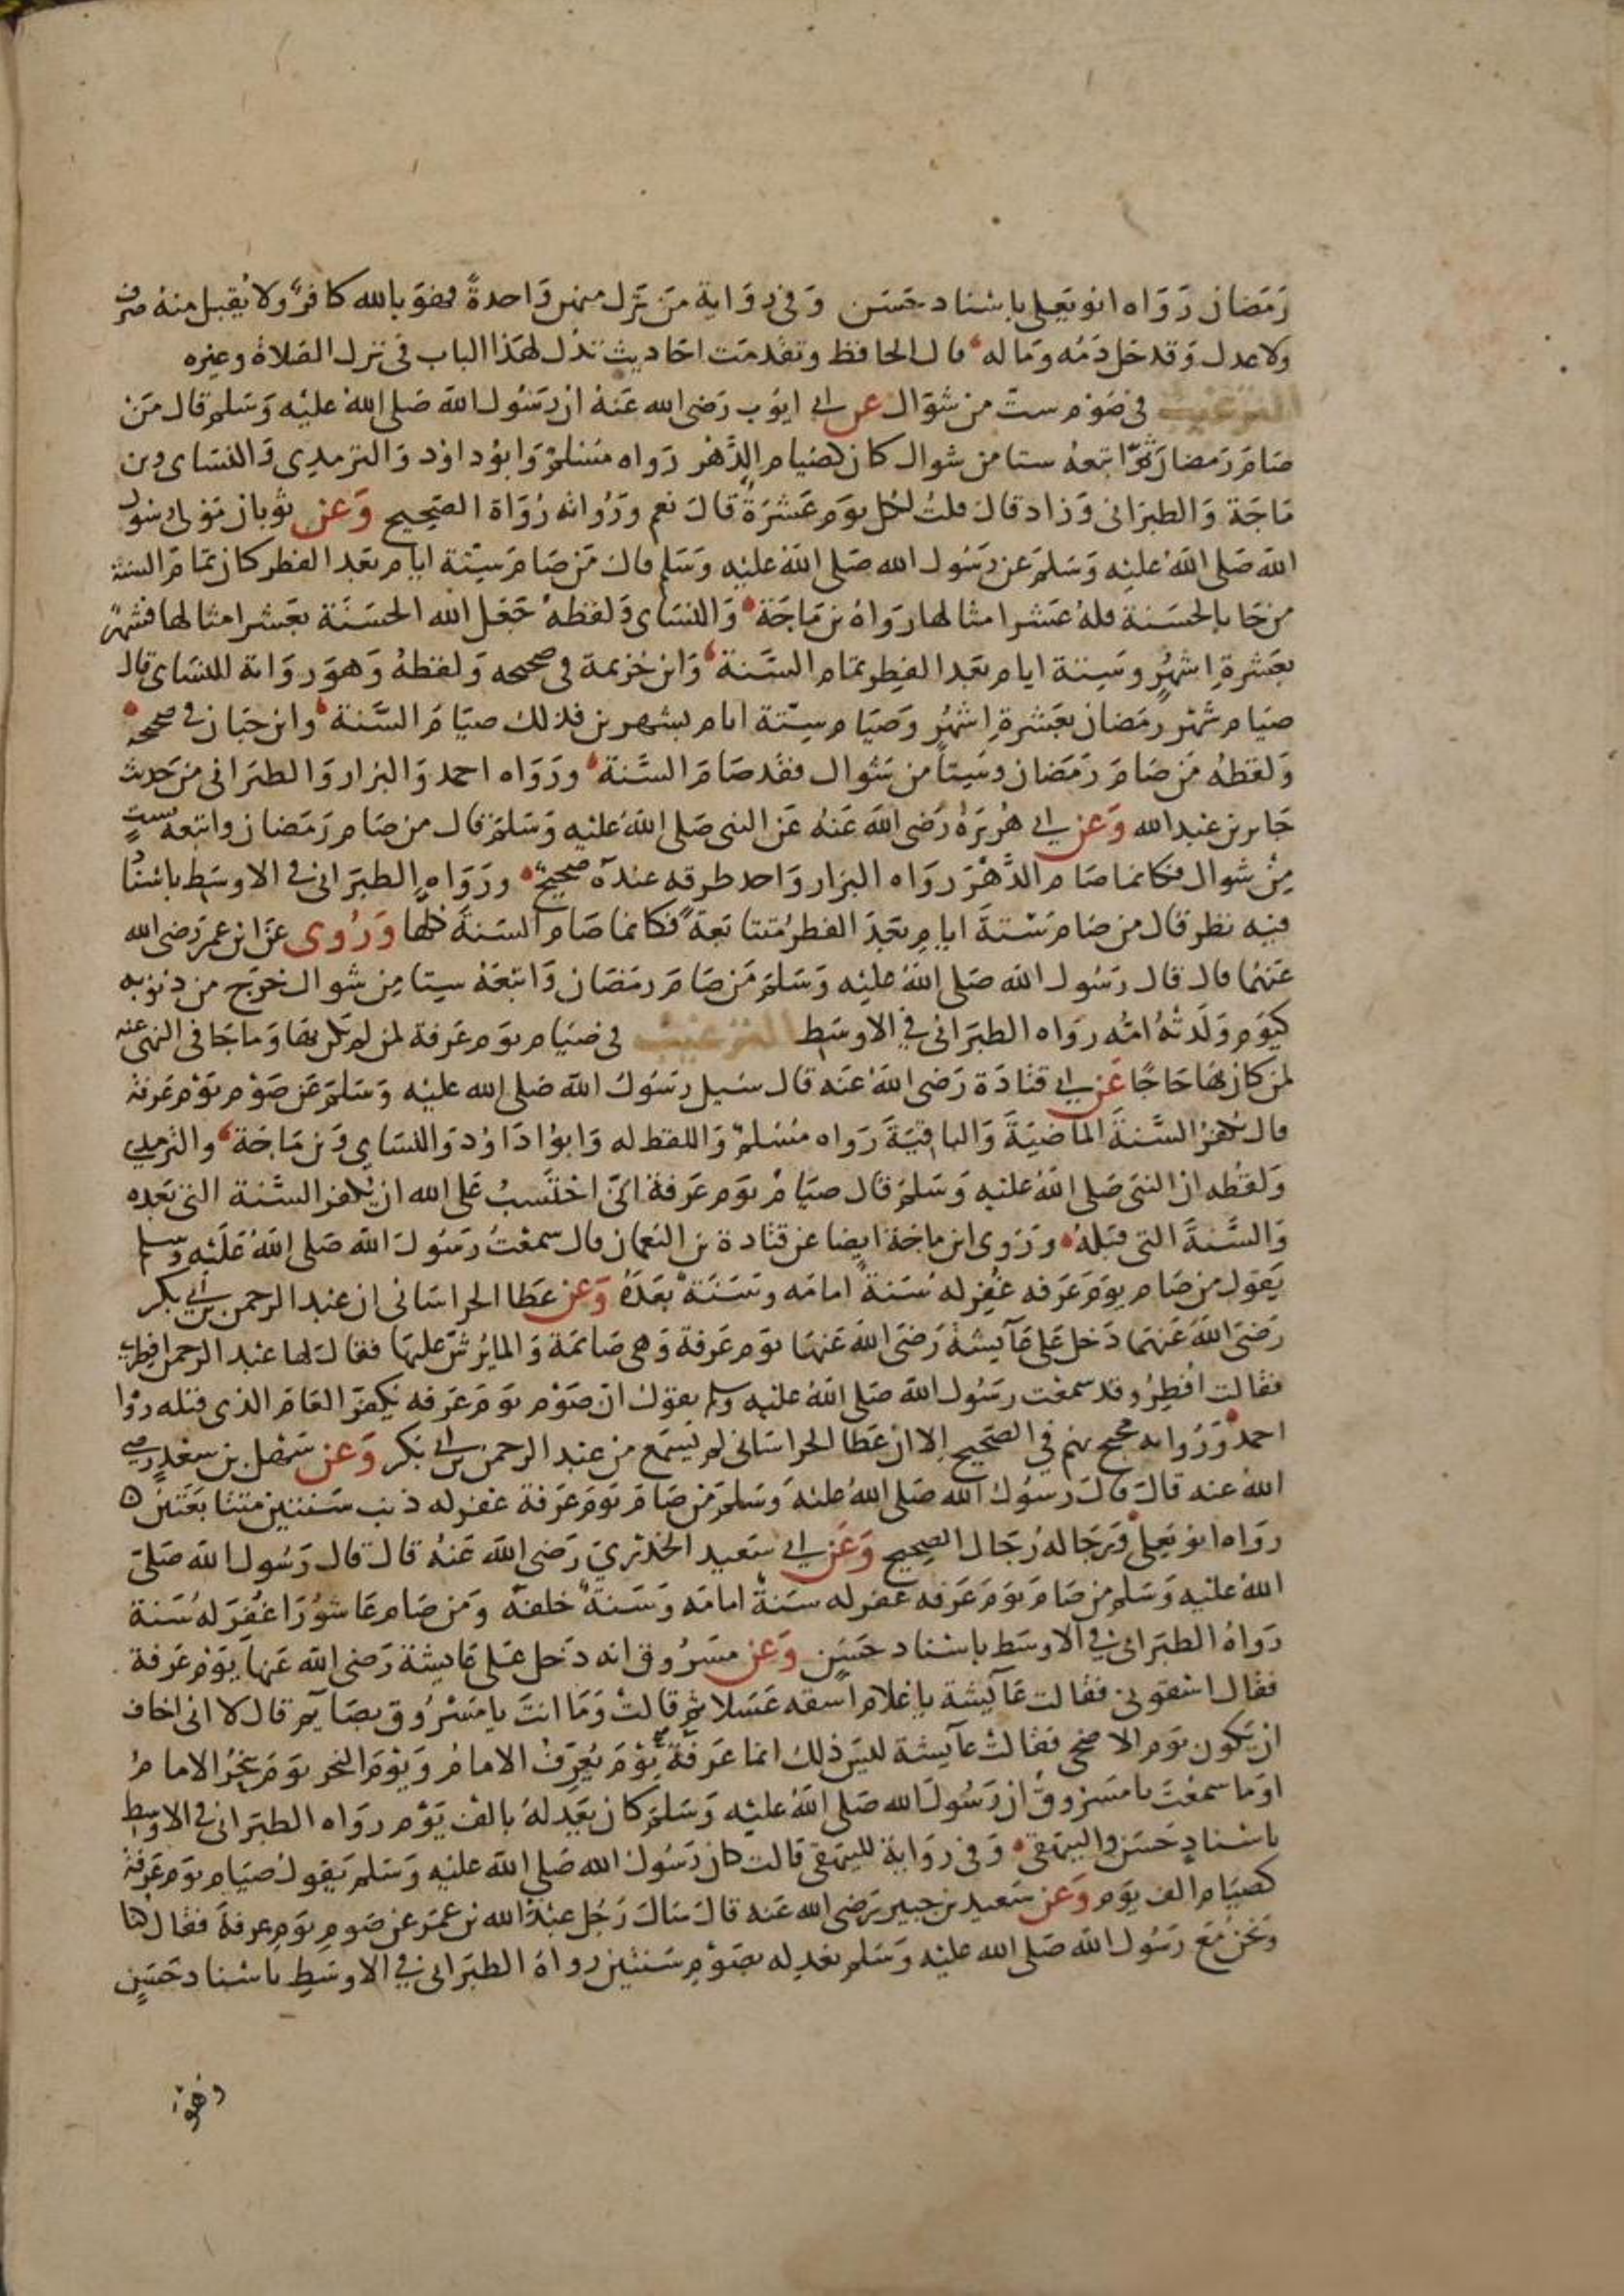 رمضان رَوَاه ابو يَعلى باسناد حسَن وَفى رِوَاية مَن ترَك منهن وَاحدةً فهوَ بالله كافرٌ ولا يُقبل منهُ صرف
ولا عدل وَقد حَل دَمُه وَماله قال الحافظ وتقدمَت احَاديث تدل لهَذا الباب فى ترك الصَلاة وغيره
الترغيب فى صَوْم ستّ من شوّال عن ابي ايوُب رَضى الله عَنهُ ان رَسُول الله صَلى اللهُ عليْه وَسَلم قال مَن
صَامَ رَمضان ثمّ اتبعهُ ستا من شوال كان كصيام الدَّهْر رَواه مسْلمٌ وَابوُ داوٗد وَالترمدِى وَالنسَاى وبن
مَاجَة وَالطبَرَانى وَزاد قال قلتُ لكُل يوَم عَشرَةٌ قالَ نعم ورُوَاته رُوَاة الصَحِيح وَعَن ثوبان مَولى رسُول
الله صَلى اللهُ عليْه وَسَلمَ عَن رَسُول الله صَلى اللهُ عليْه وَسَلم قال مَن صَامَ سِتة ايام بَعد الفطر كان تمامَ السنة
من جَا بالحسَنة فلهُ عَشر امثالها رَوَاهُ بن مَاجَة وَالنسَاى وَلفظهُ جَعَل الله الحسَنَة بعَشر امثالها فشهرٌ
بعَشرةِ اشهُرٍ وسِتة ايام بَعد الفِطر تمام السَّنة وَابن خزيمة فى صحيحه وَلفظهُ وَهوَ رِوَاية للنسَاى قال
صيَام شهْر رمَضان بعَشرةِ اشهُر وَصيَام سِتّة ايام بشهرين فذلك صيَامُ السَّنة وابن حبَان فى صحيحه
وَلفظهُ مَن صَامَ رَمَضان وسِتاً من شوال فقد صَامَ السَّنة وَرَوَاه احمد وَالبزار وَالطبرَانى من حَديث
جَابر بن عَبد الله وَعَن ابي هُريرَةَ رَضى الله عَنهُ عَن النبى صَلى اللهُ عليْه وَسَلمَ قال من صَام رَمَضان واتبعهُ بستٍ
مِنْ شوال فكانما صَام الدَّهْرَ رَوَاه البزار وَاحد طرقه عندَه صحيحٌ ورَوَاه الطبَرَانى فى الاوسَط باسناد
فيْه نظر قال من صَام سِتةَ ايامٍ بَعْدَ الفطر مُتتابعَةً فكانما صَام السَنةَ كلها وَرُوى عَن ابن عمرَ رَضى الله
عَنهُما قال قال رَسُول الله صَلى اللهُ عليْه وَسَلمَ مَن صَامَ رَمضَان وَاتبعَهُ سِتا مِن شوال خرَج من ذنوُبه
كيَوم وَلدَتهُ امُّه رَوَاه الطبَرَانى في الاوسَط الترغيب فى صيَام يوم عَرفة لمن لم يَكن بهَا وَمَا جَا فى النهى عنه
لمن كان بهَا حَاجًا عَن ابي قتادَة رَضى اللهُ عَنه قال سُيل رَسُول الله صَلى الله عليْه وَسَلمَ عَن صَوْم يَوْم عَرفة
قال يُكفرُ السَّنةَ الماضيَةَ وَالباقيَةَ رَوَاه مسْلمٌ وَاللفظ له وَابوُا دَاوُد وَالنسَاى وَبن مَاجَة والترمدِي
وَلفظُه ان النبىَ صَلى اللهُ عليْه وَسَلمَ قال صيَامُ يوم عَرفة انىّ احْتَسِبُ عَلى الله ان يُكفر السَّنة التى بَعده
وَالسَّنةَ التى قبَلهُ وَرَوى ابن ماجَة ايضا عَن قتادة بن النعمان قال سمعْتُ رَسُول الله صَلى اللهُ عَليْه وسلم
يَقوُل مَن صَام يوَم عَرَفه غُفِر له سَنةٌ امامَه وسَنَةٌ بَعدَهُ وَعن عَطا الخراسَانى ان عَبد الرحمن بن ابي بكر
رَضىَ اللهُ عَنهُمَا دَخل عَلى عَآيشةَ رَضىَ اللهُ عَنهَا يَوم عَرفة وَهى صَايمَة وَالمايُرشّ عليهَا فقال لها عَبد الرحمن افطرى
فقالت اُفطِرُ وقد سمعْت رسُول الله صَلى اللهُ عليْه وسلم يقول ان صَوْم يَوم عَرَفه يُكفرُ العَامَ الذى قبله رَوَاه
احمد وَرُوَاته محتج بهم في الصَحيح الا ان عَطا الخراسَانى لم يسَمع من عَبد الرحمن بن ابي بَكر وَعن سَهْل بن سعْدٍ رضي
اللهُ عنه قالَ قالَ رسُول الله صَلى اللهُ عليْهَ وَسَلمَ مَن صَامَ يَوَم عَرَفة غفر له ذنب سَنتين متتابعَتَين ه
رَوَاه ابو يَعلى وَرجَاله رُجَال الصحيح وَعَن ابي سَعيد الخدْري رَضى الله عَنهُ قال قال رَسُول الله صَلىَ
اللهُ عليْه وَسَلمَ مَن صَامَ يَوم عَرَفه غفر له سنَةٌ امامَه وَسَنةٌ خلفَه وَمَن صَام عَاشوُرَا غُفرَ لهُ سَنة
رَوَاهُ الطبَرَانى في الاوسَط باسناد حَسَنٍ وَعَن مسَرُوق انه دَخل عَلى عَايشة رَضى الله عَنهَا يَوْم عَرفة
فقال اسْقونى فقالت عَآيشة ياغلام اسقه عَسَلا ثم قالتْ وَمَا انتَ يا مَسْرُوق بصَايم قال لا انى اخاف
ان يَكون يوَم الاضحى فقالتْ عَآيشة ليسَ ذلك انما عَرفَة يوْمَ يُعرّفُ الامامُ وَيوْمَ النحر يوَم يَنحرُ الامامُ
اوَما سمعْتَ يا مَسروق ان رَسُول الله صَلى اللهُ عليْه وَسَلمَ كان يَعدِلهُ بالف يَوْم رَوَاه الطبَرَانى في الاوسط
باسنادٍ حَسَن والبيهَقى وَفى رِوَاية للبيهَقى قالت كان رَسُول الله صَلى اللهُ عليْه وَسَلم يَقول صيَام يوم عَرَفة
كصيَام الف يوَم وَعَن سَعيد بن جبير رَضى الله عَنه قال سَال رَجُل عبْدَ الله بن عمَر عَن صَوم يوم عرفة فقال كنا
وَنحن مَعَ رَسُول الله صَلى الله عليْه وَسَلم نعدِله بصَوْم سَنتين رَواهُ الطبَرَانى في الاوسَط باسناد حَسَنٍ
وهوَ